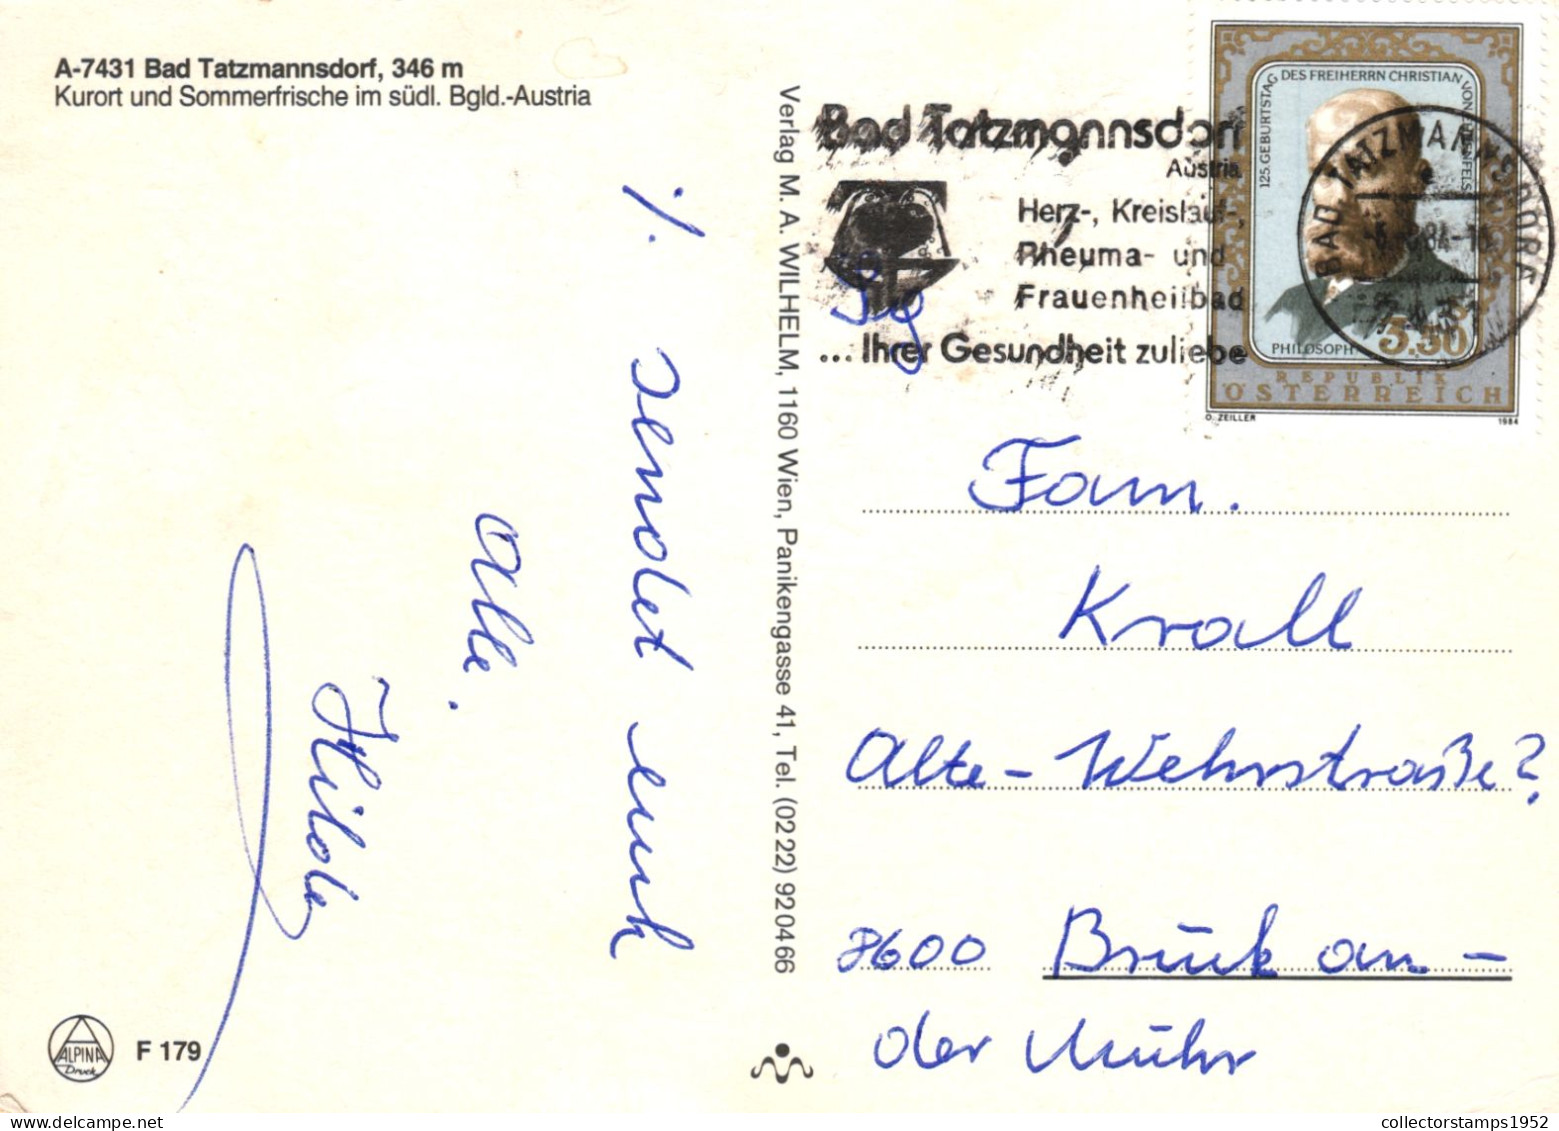 A-7431 Bad Tatzmannsdorf, 346 m
Kurort und Sommerfrische im südl. Bgld.-Austria
./. sendet euch
alle.
Hilde
Verlag M. A. WILHELM, 1160 Wien, Panikengasse 41, Tel. (02 22) 92 04 66
ALPINA
Druck
F 179
Bad Tatzmannsdorf
Austria
Herz-, Kreislauf-,
Rheuma- und
Frauenheilbad
... Ihrer Gesundheit zuliebe
125. GEBURTSTAG DES FREIHERRN CHRISTIAN VON EHRENFELS
PHILOSOPH
3.50
REPUBLIK
ÖSTERREICH
O. ZEILLER
1984
BAD TATZMANNSDORF
Fam.
Krall
Alte-Wehrstraße?
8600 Bruck an-
der Muhr
collectorstamps1952